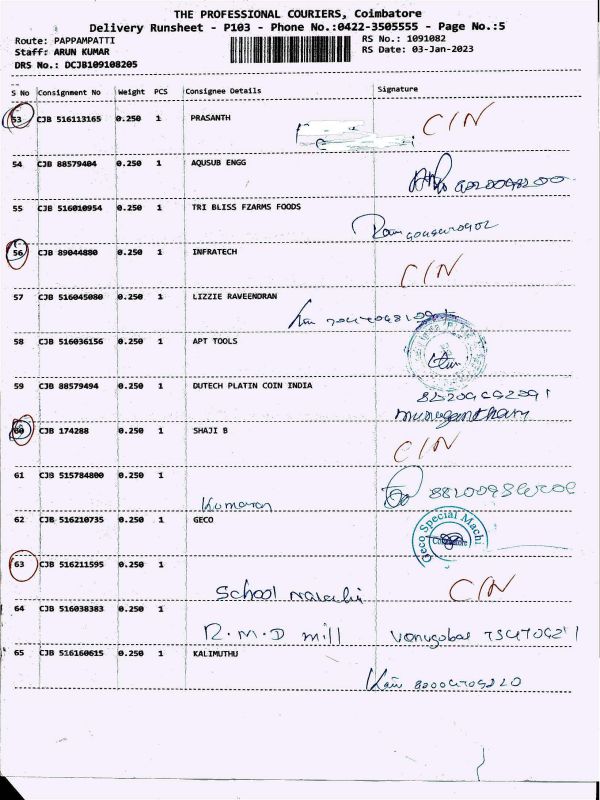 THE PROFESSIONAL COURIERS, Coimbatore
Delivery Runsheet - P103 - Phone No.:0422-3505555 - Page No.:5
Route: PAPPAMPATTI RS No.: 1091082
Staff: ARUN KUMAR RS Date: 03-Jan-2023
DRS No.: DCJB109108205
S No Consignment No Weight PCS Consignee Details Signature
53 CJB 516113165 0.250 1 PRASANTH CIN
54 CJB 88579404 0.250 1 AQUSUB ENGG
55 CJB 516010954 0.250 1 TRI BLISS FZARMS FOODS
56 CJB 89044880 0.250 1 INFRATECH CIN
57 CJB 516045080 0.250 1 LIZZIE RAVEENDRAN
58 CJB 516036156 0.250 1 APT TOOLS
59 CJB 88579494 0.250 1 DUTECH PLATIN COIN INDIA
60 CJB 174288 0.250 1 SHAJI B CIN
61 CJB 515784800 0.250 1
Kumaran
62 CJB 516210735 0.250 1 GECO Geco Special Machi Coimbatore
63 CJB 516211595 0.250 1
School CIN
64 CJB 516038383 0.250 1
R.M.D mill
65 CJB 516160615 0.250 1 KALIMUTHU